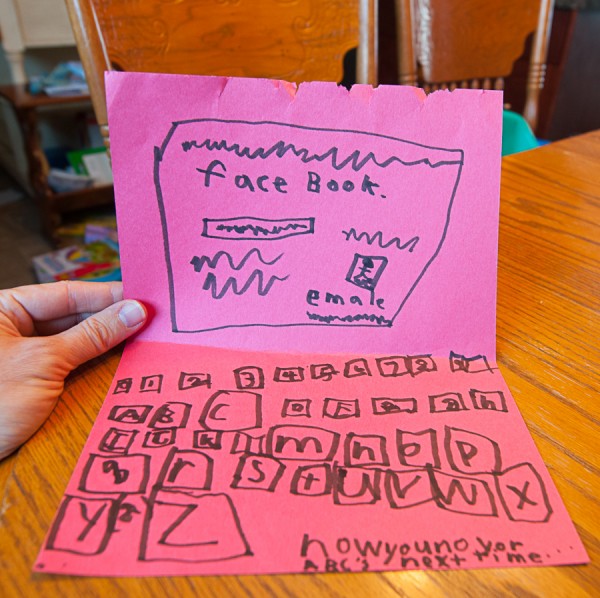 face Book.
emale
1 2 3 4 5 6 7 8 9
A B C D F e g h
I J K L m n o p
q r s t U V W X
Y Z
nowyounoyor...
ABC's next time...